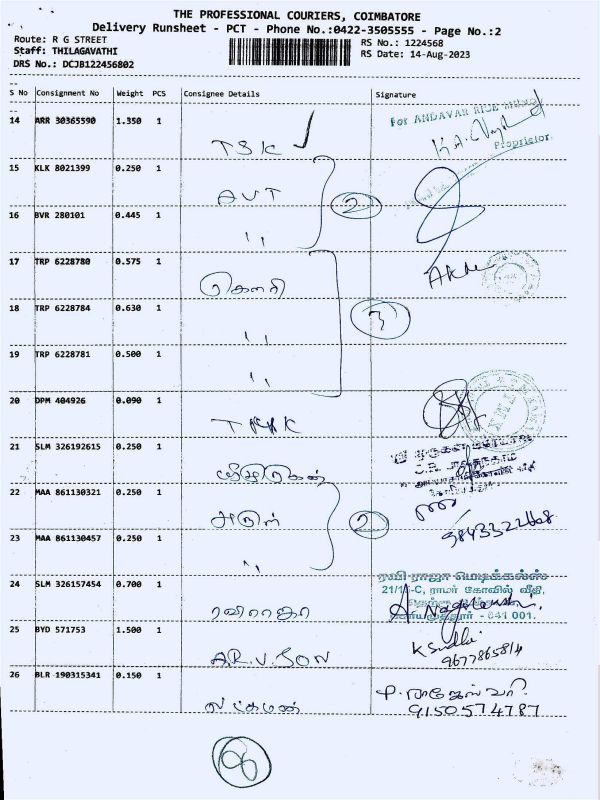 THE PROFESSIONAL COURIERS, COIMBATORE
Delivery Runsheet - PCT - Phone No.:0422-3505555 - Page No.:2
Route: R G STREET
RS No.: 1224568
Staff: THILAGAVATHI
RS Date: 14-Aug-2023
DRS No.: DCJB122456802
S No Consignment No Weight PCS Consignee Details Signature
14 ARR 30365590 1.350 1
For ANDAVAR RICE
TSK ✓
Proprietor
15 KLK 8021399 0.250 1
AVT
2
16 BVR 280101 0.445 1
,,
17 TRP 6228780 0.575 1
கௌரி
18 TRP 6228784 0.630 1
3
,,
19 TRP 6228781 0.500 1
,,
20 DPM 404926 0.090 1
21 SLM 326192615 0.250 1
22 MAA 861130321 0.250 1
அருள்
2
23 MAA 861130457 0.250 1
,,
24 SLM 326157454 0.700 1
ரவி ராஜா மெடிக்கல்ஸ்
ராமர் கோவில் வீதி,
ரவிராஜா
- 641 001.
25 BYD 571753 1.500 1
A.R.V.SON
9677865814
26 BLR 190315341 0.150 1
லட்சுமணன்
9150574787
8